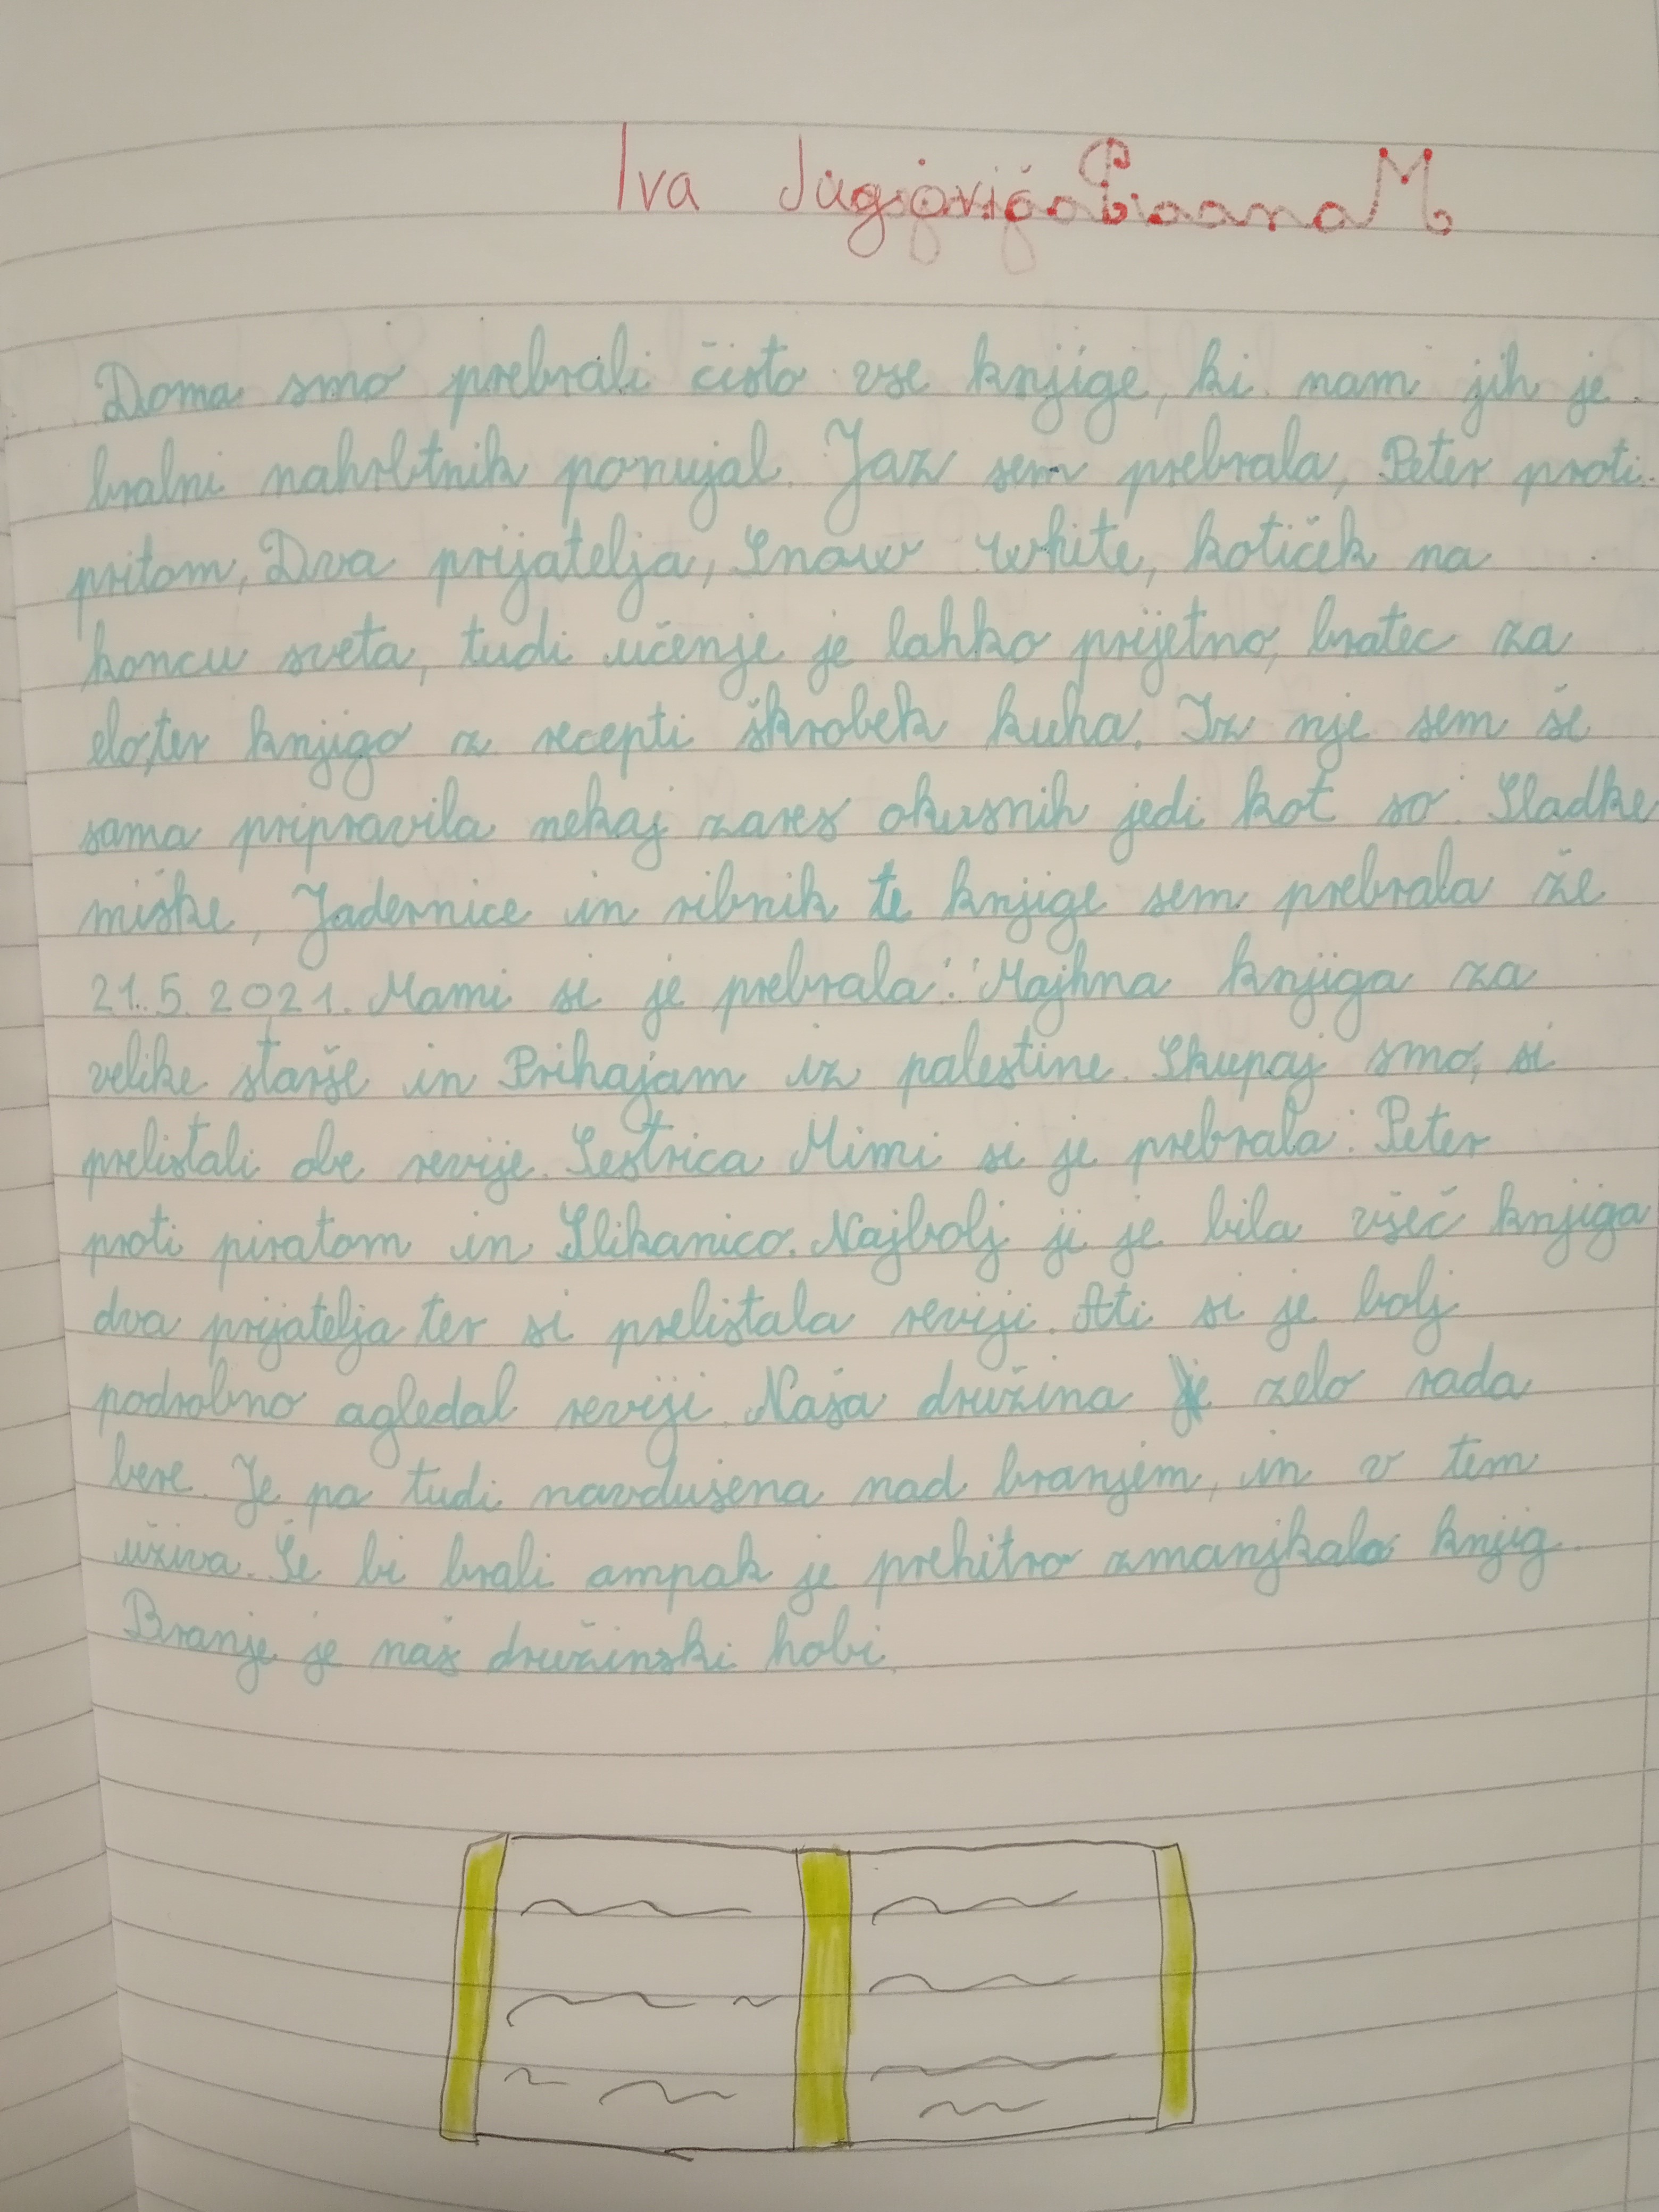 Iva
Doma smo prebrali čisto vse knjige, ki nam jih je
bralni nahrbtnik ponujal. Jaz sem prebrala, Peter proti
pritom, Dva prijatelja, Snow white, kotiček na
koncu sveta, tudi učenje je lahko prijetno, bratec za
elo,ter knjigo z recepti škrobek kuha. Iz nje sem si
sama pripravila nekaj zares okusnih jedi kot so: Sladke
miške, Jadernice in ribnik te knjige sem prebrala že
21.5.2021. Mami si je prebrala: Majhna knjiga za
velike starše in Prihajam iz palestine. Skupaj smo, si
prelistali obe revije. Sestrica Mimi si je prebrala: Peter
proti piratom in Slikanico. Najbolj ji je bila všeč knjiga
dva prijatelja ter si prelistala reviji. Ati si je bolj
podrobno agledal reviji. Naša družina je zelo rada
bere. Je pa tudi navdušena nad branjem, in v tem
uživa. Še bi brali ampak je prehitro zmanjkalo knjig.
Branje je naš družinski hobi.